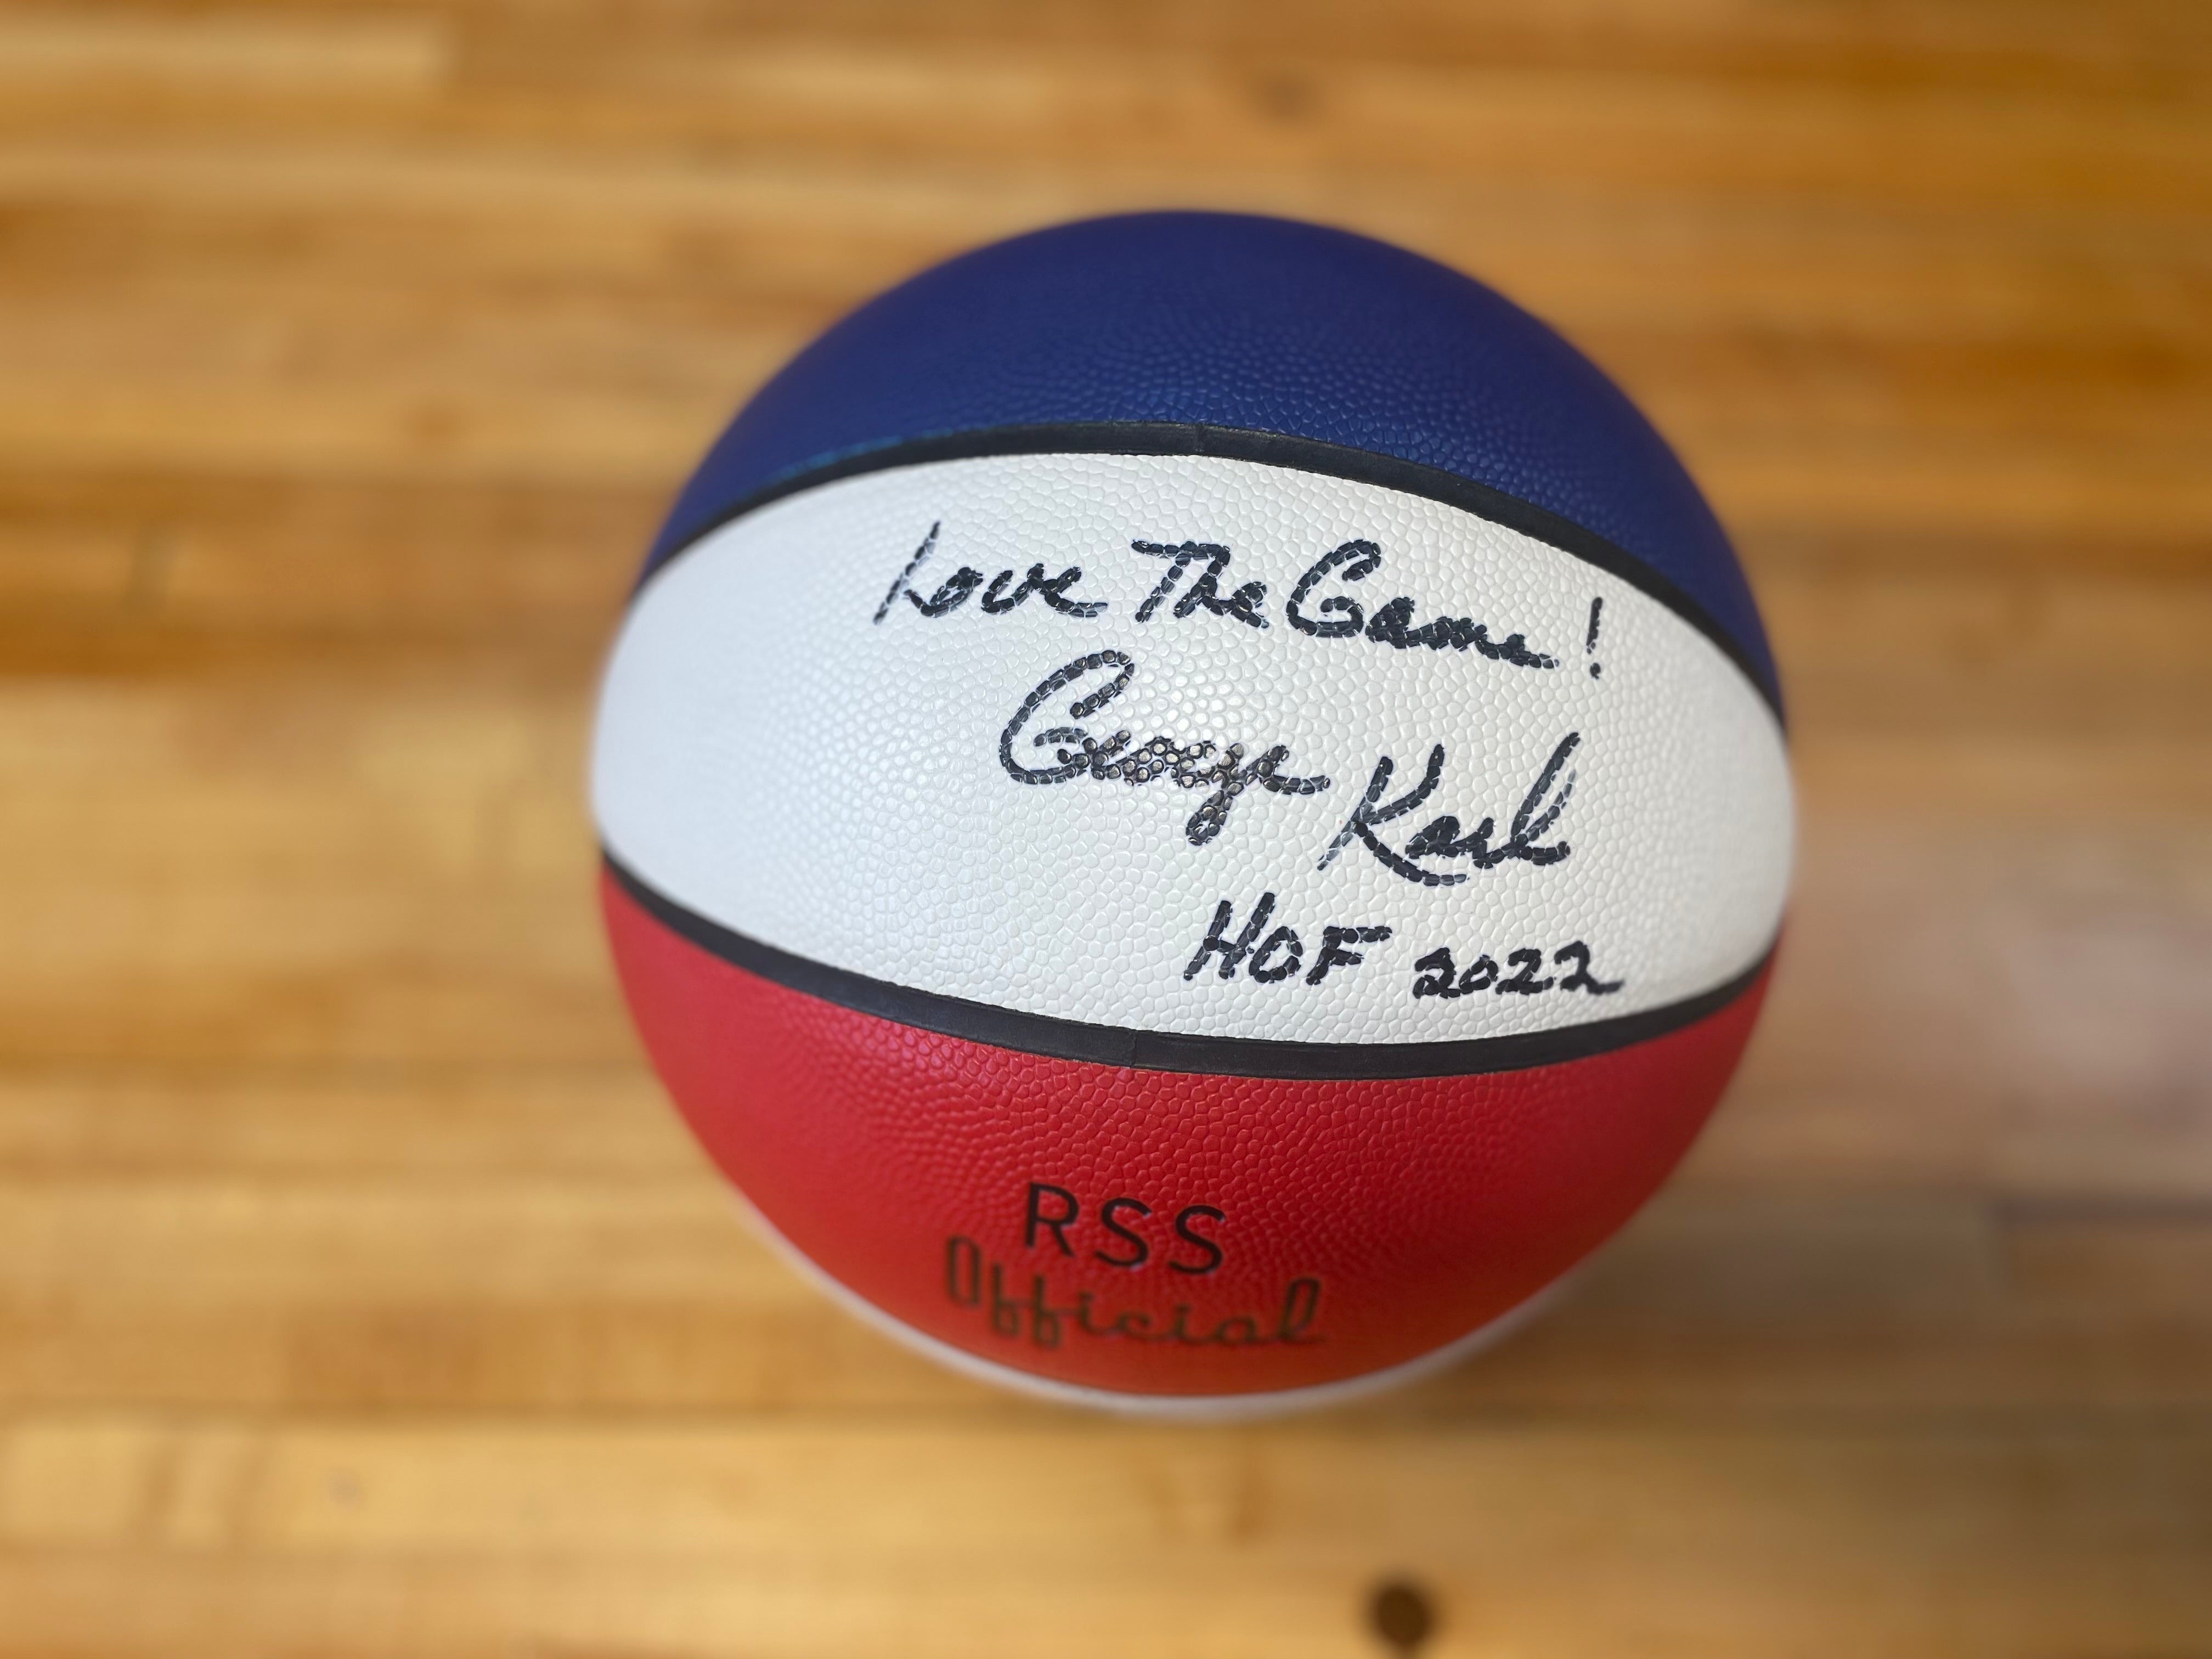 Love The Game!
George Karl
HOF 2022
RSS
Official